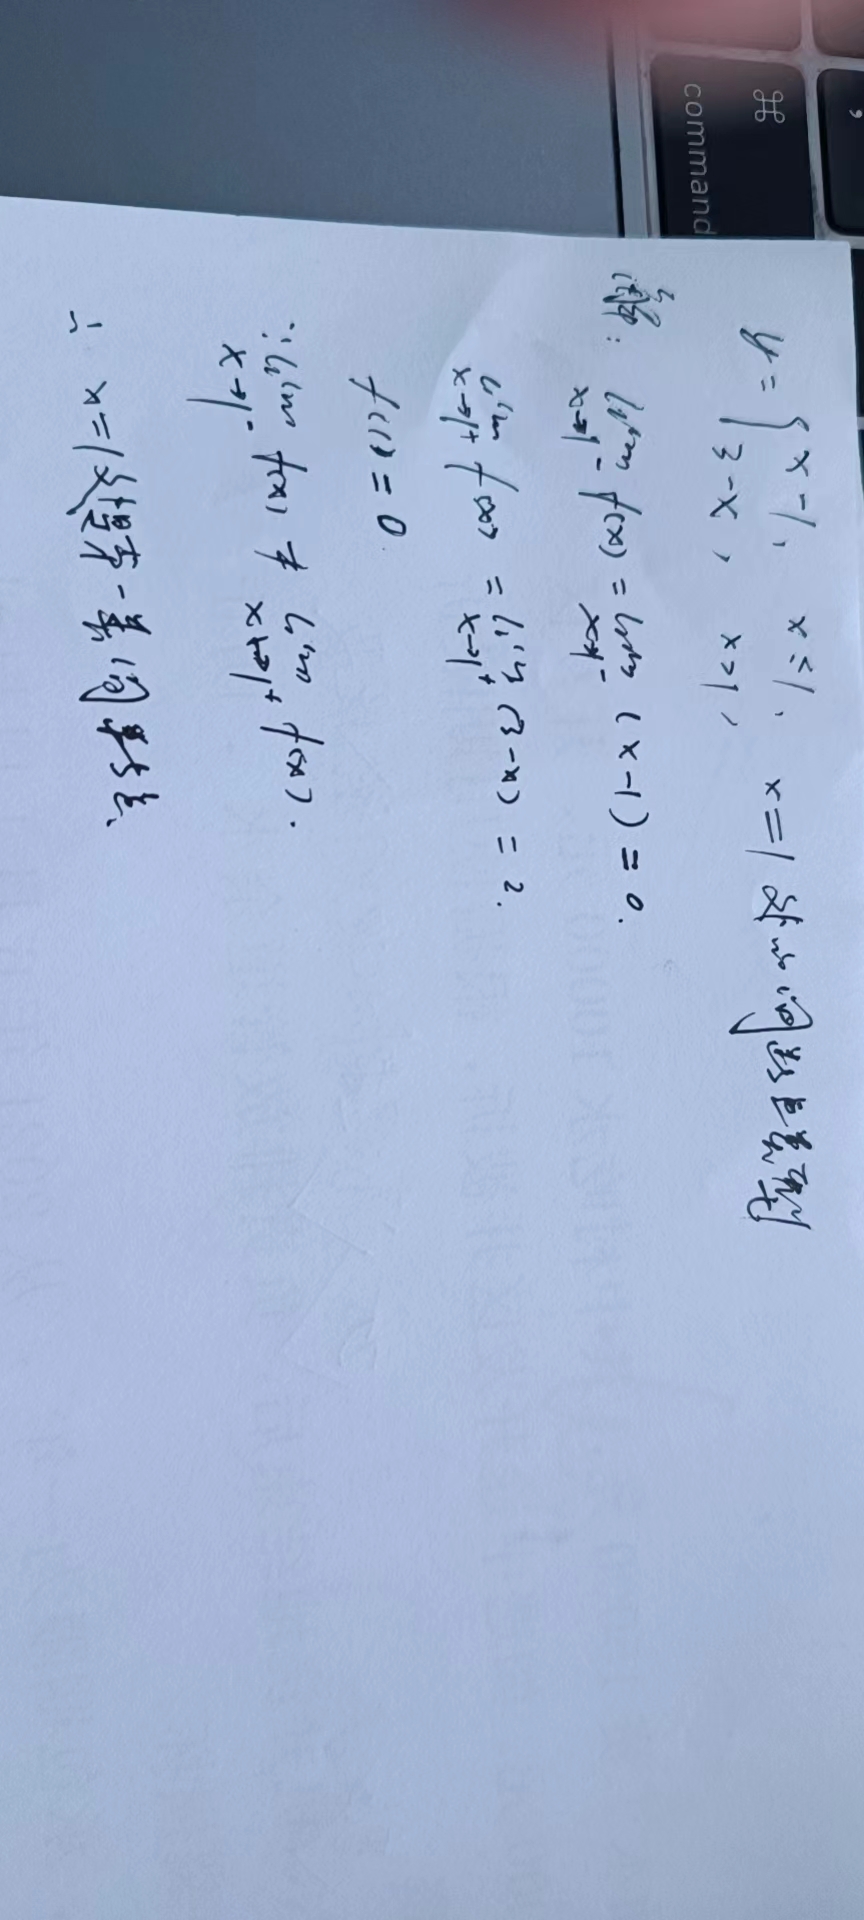 ⌘
command
y = { x-1, x≤1,
3-x, x>1,
x=1 处的间断点类型
解: lim x→1⁻ f(x) = lim x→1⁻ (x-1) = 0.
lim x→1⁺ f(x) = lim x→1⁺ (3-x) = 2.
f(1) = 0.
∵ lim x→1⁻ f(x) ≠ lim x→1⁺ f(x).
∴ x=1 是第一类间断点.